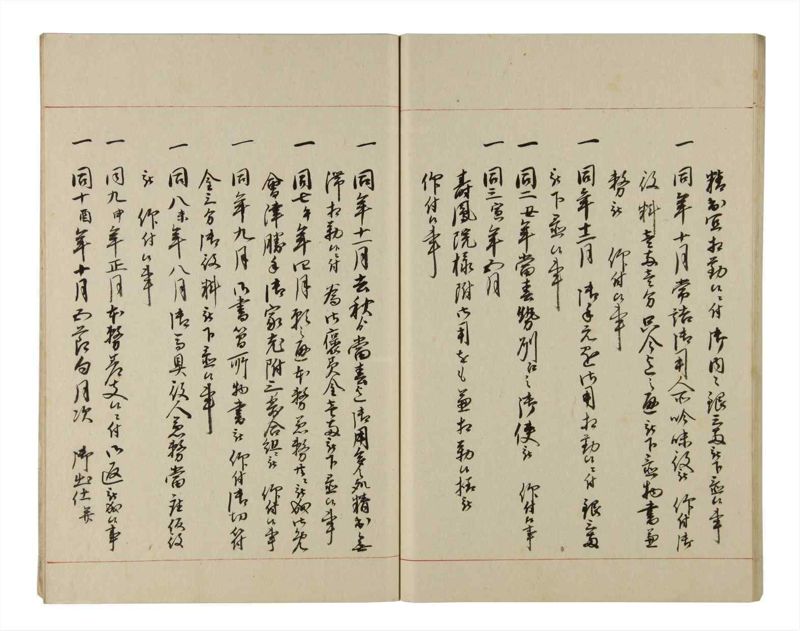 精出宜相勤候ニ付 御内々銀三両被下置候事
一 同年十月常詰御用人所吟味役被 仰付御
役料壱両壱分只今迄之通被下置物書兼
務被 仰付候事
一 同年十二月 御手元羽御用相勤候ニ付銀三両
被下置候事
一 同二丑年當春勢州江之御使被 仰付候事
一 同三寅年四月
壽鳳院様附御用をも兼相勤候様被
仰付候事
一 同年十二月去秋分當春迄御用多処精出無
滞相勤候ニ付為御褒美金壱両被下置候事
一 同七午年四月願之通本務兼務共被成御免
會津勝手御家老附三番合組被 仰付候事
一 同年九月御書簡所物書被 仰付御切符
金三分御役料被下置候事
一 同八未年八月御道具役人兼務當座仮役
被 仰付候事
一 同九申年正月本務差支候ニ付御返被成候事
一 同十酉年十月 五節句月次 御出仕並